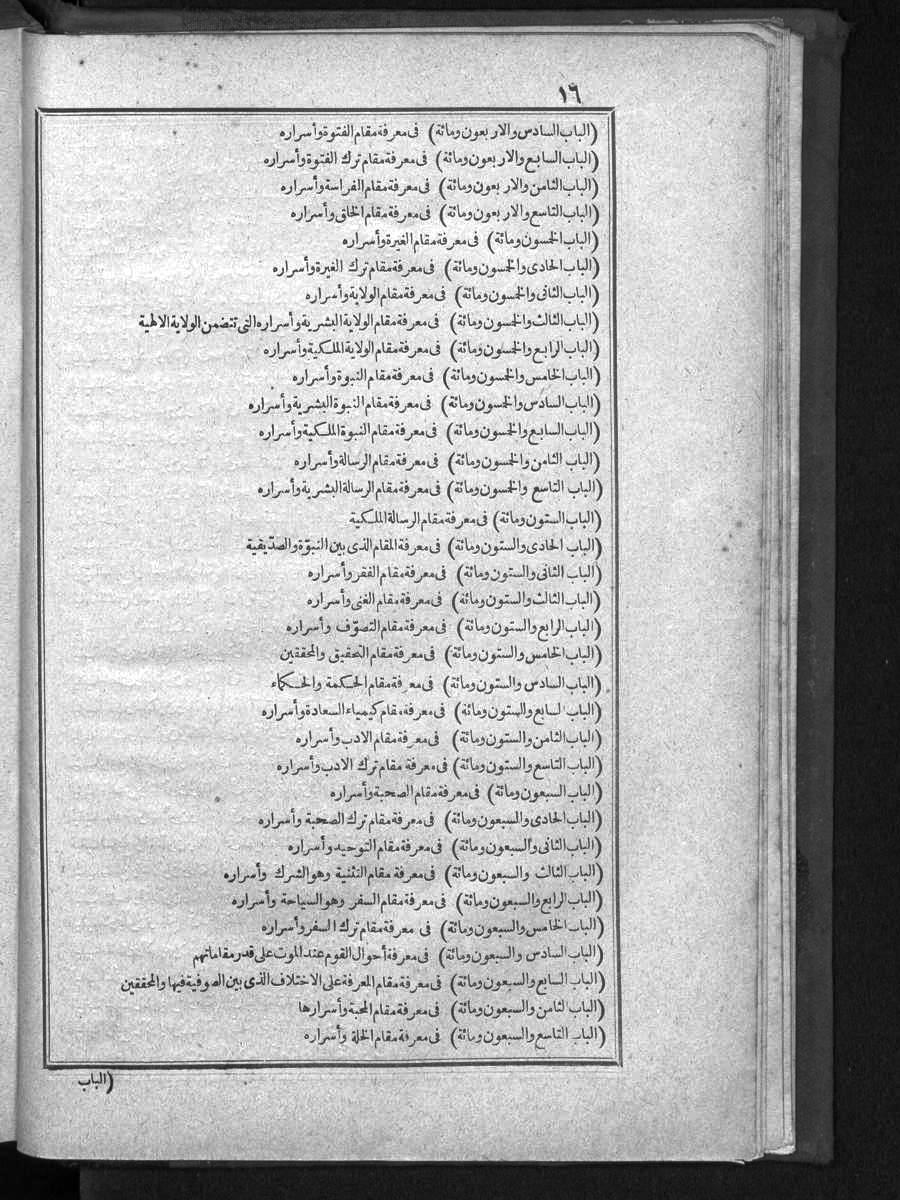 ١٦
(الباب السادس والاربعون ومائة) فى معرفة مقام الفتوة وأسراره
(الباب السابع والاربعون ومائة) فى معرفة مقام ترك الفتوة وأسراره
(الباب الثامن والاربعون ومائة) فى معرفة مقام الفراسة وأسراره
(الباب التاسع والاربعون ومائة) فى معرفة مقام الخلق وأسراره
(الباب الخمسون ومائة) فى معرفة مقام الغيرة وأسراره
(الباب الحادى والخمسون ومائة) فى معرفة مقام ترك الغيرة وأسراره
(الباب الثانى والخمسون ومائة) فى معرفة مقام الولاية وأسراره
(الباب الثالث والخمسون ومائة) فى معرفة مقام الولاية البشرية وأسراره التى تتضمن الولاية الالهية
(الباب الرابع والخمسون ومائة) فى معرفة مقام الولاية الملكية وأسراره
(الباب الخامس والخمسون ومائة) فى معرفة مقام النبوة وأسراره
(الباب السادس والخمسون ومائة) فى معرفة مقام النبوة البشرية وأسراره
(الباب السابع والخمسون ومائة) فى معرفة مقام النبوة الملكية وأسراره
(الباب الثامن والخمسون ومائة) فى معرفة مقام الرسالة وأسراره
(الباب التاسع والخمسون ومائة) فى معرفة مقام الرسالة البشرية وأسراره
(الباب الستون ومائة) فى معرفة مقام الرسالة الملكية
(الباب الحادى والستون ومائة) فى معرفة المقام الذى بين النبوّة والصدّيقية
(الباب الثانى والستون ومائة) فى معرفة مقام الفقر وأسراره
(الباب الثالث والستون ومائة) فى معرفة مقام الغنى وأسراره
(الباب الرابع والستون ومائة) فى معرفة مقام التصوّف وأسراره
(الباب الخامس والستون ومائة) فى معرفة مقام التحقيق والمحققين
(الباب السادس والستون ومائة) فى معرفة مقام الحكمة والحكماء
(الباب السابع والستون ومائة) فى معرفة مقام كيمياء السعادة وأسراره
(الباب الثامن والستون ومائة) فى معرفة مقام الادب وأسراره
(الباب التاسع والستون ومائة) فى معرفة مقام ترك الادب وأسراره
(الباب السبعون ومائة) فى معرفة مقام الصحبة وأسراره
(الباب الحادى والسبعون ومائة) فى معرفة مقام ترك الصحبة وأسراره
(الباب الثانى والسبعون ومائة) فى معرفة مقام التوحيد وأسراره
(الباب الثالث والسبعون ومائة) فى معرفة مقام التثنية وهو الشرك وأسراره
(الباب الرابع والسبعون ومائة) فى معرفة مقام السفر وهو السياحة وأسراره
(الباب الخامس والسبعون ومائة) فى معرفة مقام ترك السفر وأسراره
(الباب السادس والسبعون ومائة) فى معرفة أحوال القوم عند الموت على قدر مقاماتهم
(الباب السابع والسبعون ومائة) فى معرفة مقام المعرفة على الاختلاف الذى بين الصوفية فيها والمحققين
(الباب الثامن والسبعون ومائة) فى معرفة مقام المحبة وأسرارها
(الباب التاسع والسبعون ومائة) فى معرفة مقام الخلة وأسراره
(الباب